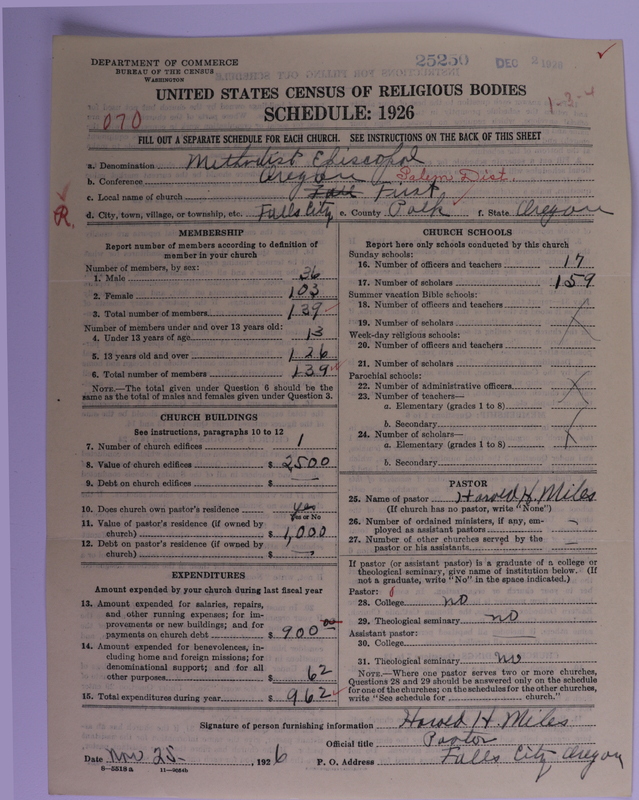 25250 DEC 2 1926
DEPARTMENT OF COMMERCE
BUREAU OF THE CENSUS
WASHINGTON
UNITED STATES CENSUS OF RELIGIOUS BODIES
SCHEDULE: 1926
1-3-4
070
FILL OUT A SEPARATE SCHEDULE FOR EACH CHURCH. SEE INSTRUCTIONS ON THE BACK OF THIS SHEET
a. Denomination Methodist Episcopal
b. Conference Oregon Salem Dist.
c. Local name of church First
R.
d. City, town, village, or township, etc. Falls City e. County Polk f. State Oregon
MEMBERSHIP
Report number of members according to definition of
member in your church
Number of members, by sex:
1. Male 36
2. Female 103
3. Total number of members 139
Number of members under and over 13 years old:
4. Under 13 years of age 13
5. 13 years old and over 126
6. Total number of members 139
NOTE.—The total given under Question 6 should be the
same as the total of males and females given under Question 3.
CHURCH BUILDINGS
See instructions, paragraphs 10 to 12
7. Number of church edifices 1
8. Value of church edifices $ 2500
9. Debt on church edifices $ —
10. Does church own pastor's residence yes
Yes or No
11. Value of pastor's residence (if owned by
church) $ 1,000
12. Debt on pastor's residence (if owned by
church) $ —
EXPENDITURES
Amount expended by your church during last fiscal year
13. Amount expended for salaries, repairs,
and other running expenses; for im-
provements or new buildings; and for
payments on church debt $ 900 00
14. Amount expended for benevolences, in-
cluding home and foreign missions; for
denominational support; and for all
other purposes $ 62
15. Total expenditures during year $ 962
CHURCH SCHOOLS
Report here only schools conducted by this church
Sunday schools:
16. Number of officers and teachers 17
17. Number of scholars 159
Summer vacation Bible schools:
18. Number of officers and teachers
19. Number of scholars
Week-day religious schools:
20. Number of officers and teachers
21. Number of scholars
Parochial schools:
22. Number of administrative officers
23. Number of teachers—
a. Elementary (grades 1 to 8)
b. Secondary
24. Number of scholars—
a. Elementary (grades 1 to 8)
b. Secondary
PASTOR
25. Name of pastor Harold H. Miles
(If church has no pastor, write "None")
26. Number of ordained ministers, if any, em-
ployed as assistant pastors —
27. Number of other churches served by the
pastor or his assistants —
If pastor (or assistant pastor) is a graduate of a college or
theological seminary, give name of institution below. (If
not a graduate, write "No" in the space indicated.)
Pastor:
28. College no
29. Theological seminary no
Assistant pastor:
30. College —
31. Theological seminary no
NOTE.—Where one pastor serves two or more churches,
Questions 28 and 29 should be answered only on the schedule
for one of the churches; on the schedules for the other churches,
write "See schedule for church."
Signature of person furnishing information Harold H. Miles
Official title Pastor
Date Nov 25- , 1926 P. O. Address Falls City Oregon
8-5518 a 11-9054b